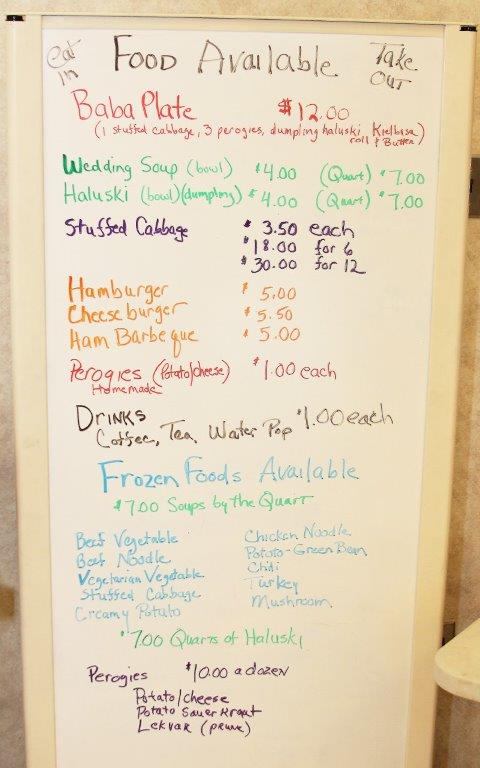 eat in Food Available Take Out
Baba Plate $12.00
(1 stuffed cabbage, 3 perogies, dumpling haluski, Kielbasa)
roll & Butter
Wedding Soup (bowl) $4.00 (Quart) $7.00
Haluski (bowl)(dumpling) $4.00 (Quart) $7.00
Stuffed Cabbage $3.50 each
$18.00 for 6
$30.00 for 12
Hamburger $5.00
Cheeseburger $5.50
Ham Barbeque $5.00
Perogies (Potato/cheese) $1.00 each
Homemade
Drinks $1.00 each
Coffee, Tea, Water Pop
Frozen Foods Available
$7.00 Soups by the Quart
Beef Vegetable Chicken Noodle
Beef Noodle Potato-Green Bean
Vegetarian Vegetable Chili
Stuffed Cabbage Turkey
Creamy Potato Mushroom
$7.00 Quarts of Haluski
Perogies $10.00 a dozen
Potato/cheese
Potato Sauer Kraut
Lekvar (prune)